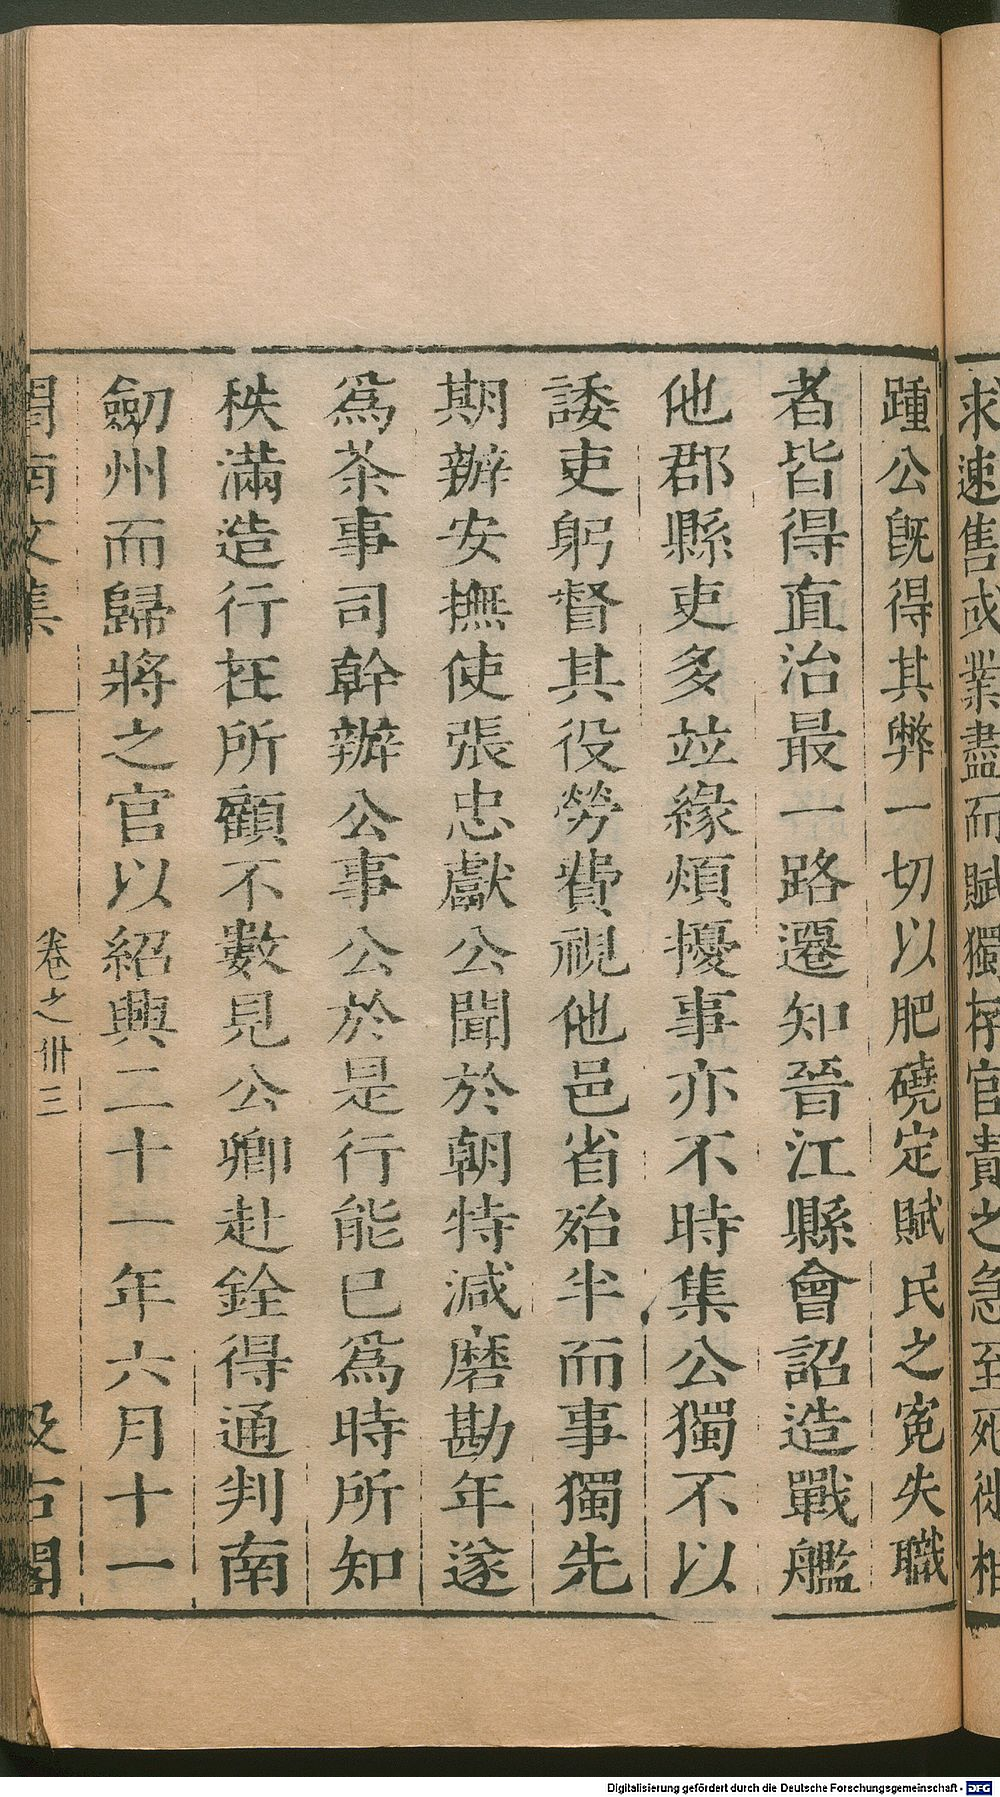 求速售或業盡而賦獨存官責之急至死徙相
踵公旣得其弊一切以肥磽定賦民之寃失職
者皆得直治最一路遷知晉江縣會詔造戰艦
他郡縣吏多竝緣煩擾事亦不時集公獨不以
諉吏躬督其役勞費視他邑省殆半而事獨先
期辦安撫使張忠獻公聞於朝特減磨勘年遂
爲茶事司幹辦公事公於是行能巳爲時所知
秩滿造行在所顧不數見公卿赴銓得通判南
劒州而歸將之官以紹興二十一年六月十一
渭南文集 卷之卅三 汲古閣
Digitalisierung gefördert durch die Deutsche Forschungsgemeinschaft - DFG